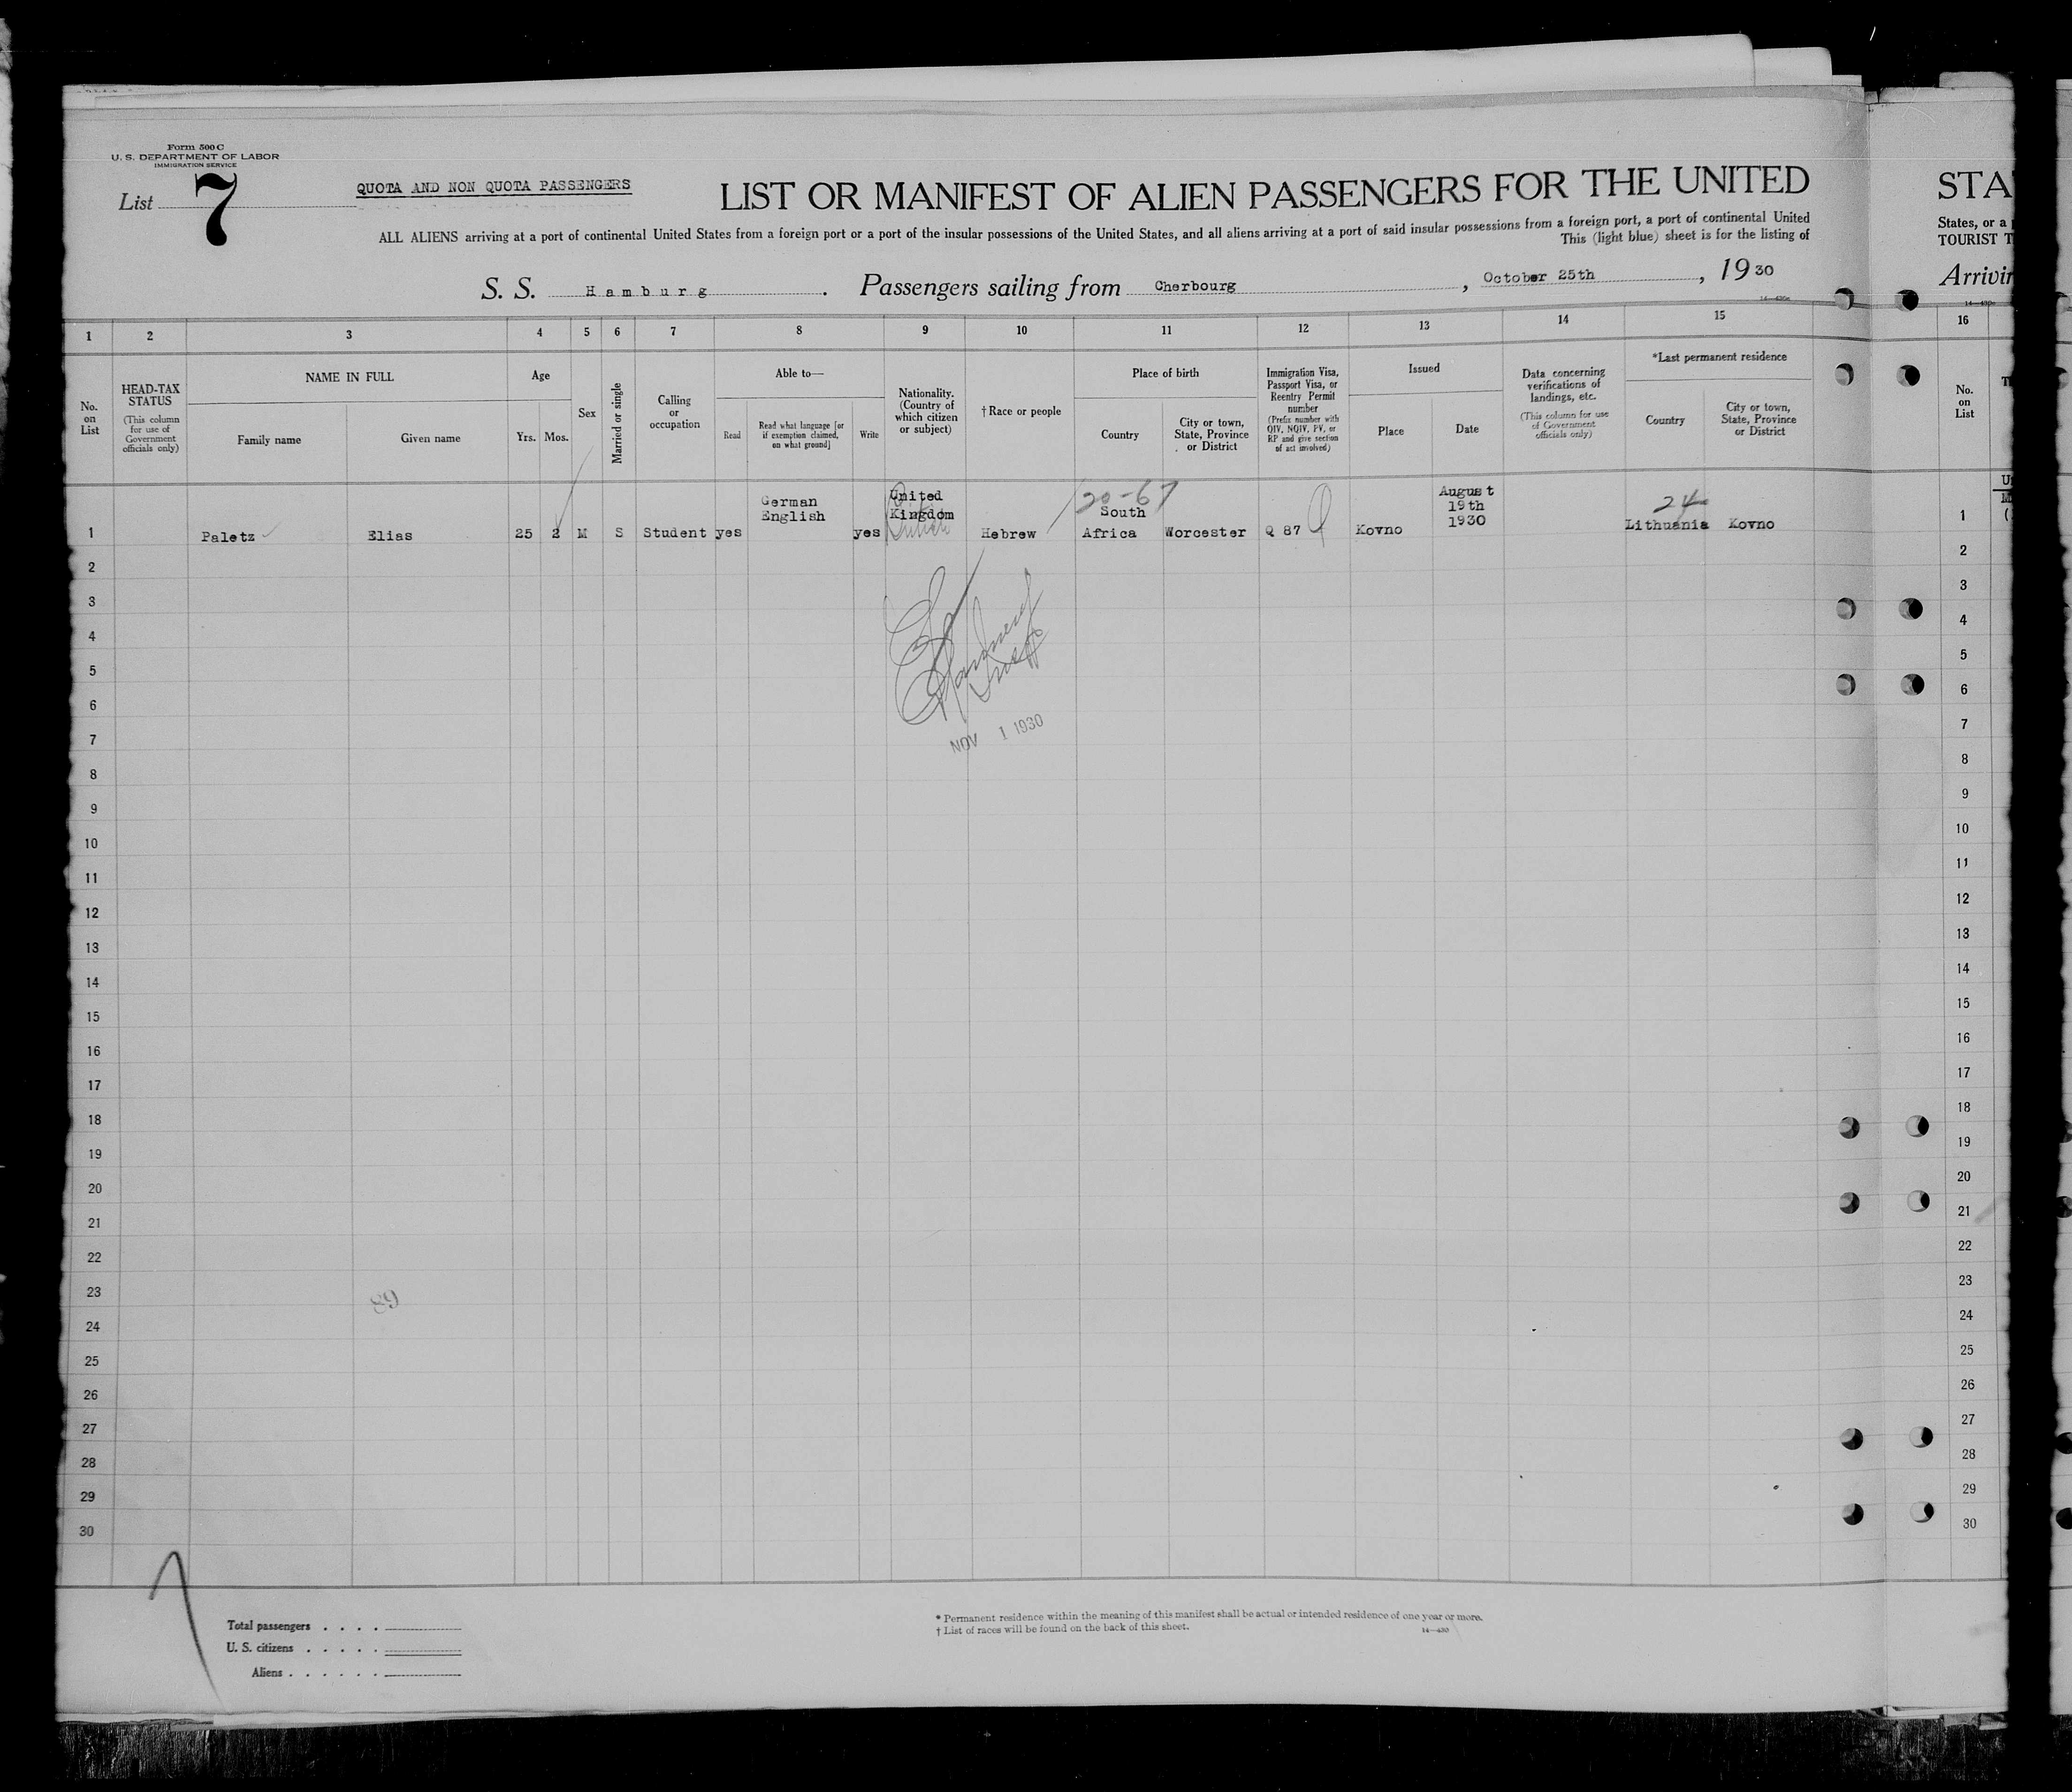 Form 500 C
U. S. DEPARTMENT OF LABOR
IMMIGRATION SERVICE
List 7
QUOTA AND NON QUOTA PASSENGERS
LIST OR MANIFEST OF ALIEN PASSENGERS FOR THE UNITED
ALL ALIENS arriving at a port of continental United States from a foreign port or a port of the insular possessions of the United States, and all aliens arriving at a port of said insular possessions from a foreign port, a port of continental United
This (light blue) sheet is for the listing of
S. S. Hamburg. Passengers sailing from Cherbourg, October 25th, 1930
STA
States, or a
TOURIST T
Arrivin
1 2 3 4 5 6 7 8 9 10 11 12 13 14 15 16
No. on List
HEAD-TAX STATUS
(This column for use of Government officials only)
NAME IN FULL
Family name
Given name
Age
Yrs. Mos.
Sex
Married or single
Calling or occupation
Able to—
Read
Read what language [or if exemption claimed, on what ground]
Write
Nationality. (Country of which citizen or subject)
†Race or people
Place of birth
Country
City or town, State, Province or District
Immigration Visa, Passport Visa, or Reentry Permit number
(Prefix number with QIV, NQIV, PV, or RP and give section of act involved)
Issued
Place
Date
Data concerning verifications of landings, etc.
(This column for use of Government officials only)
*Last permanent residence
Country
City or town, State, Province or District
No. on List
20-67
24
1 Paletz Elias 25 2 M S Student yes German English yes United Kingdom Hebrew South Africa Worcester Q 87 Kovno August 19th 1930 Lithuania Kovno 1
2 2
3 3
4 4
5 5
6 6
7 7
NOV 1 1930
8 8
9 9
10 10
11 11
12 12
13 13
14 14
15 15
16 16
17 17
18 18
19 19
20 20
21 21
22 22
23 23
89
24 24
25 25
26 26
27 27
28 28
29 29
30 30
Total passengers . . . .
U. S. citizens . . . . .
Aliens . . . . . .
* Permanent residence within the meaning of this manifest shall be actual or intended residence of one year or more.
† List of races will be found on the back of this sheet.
14—430